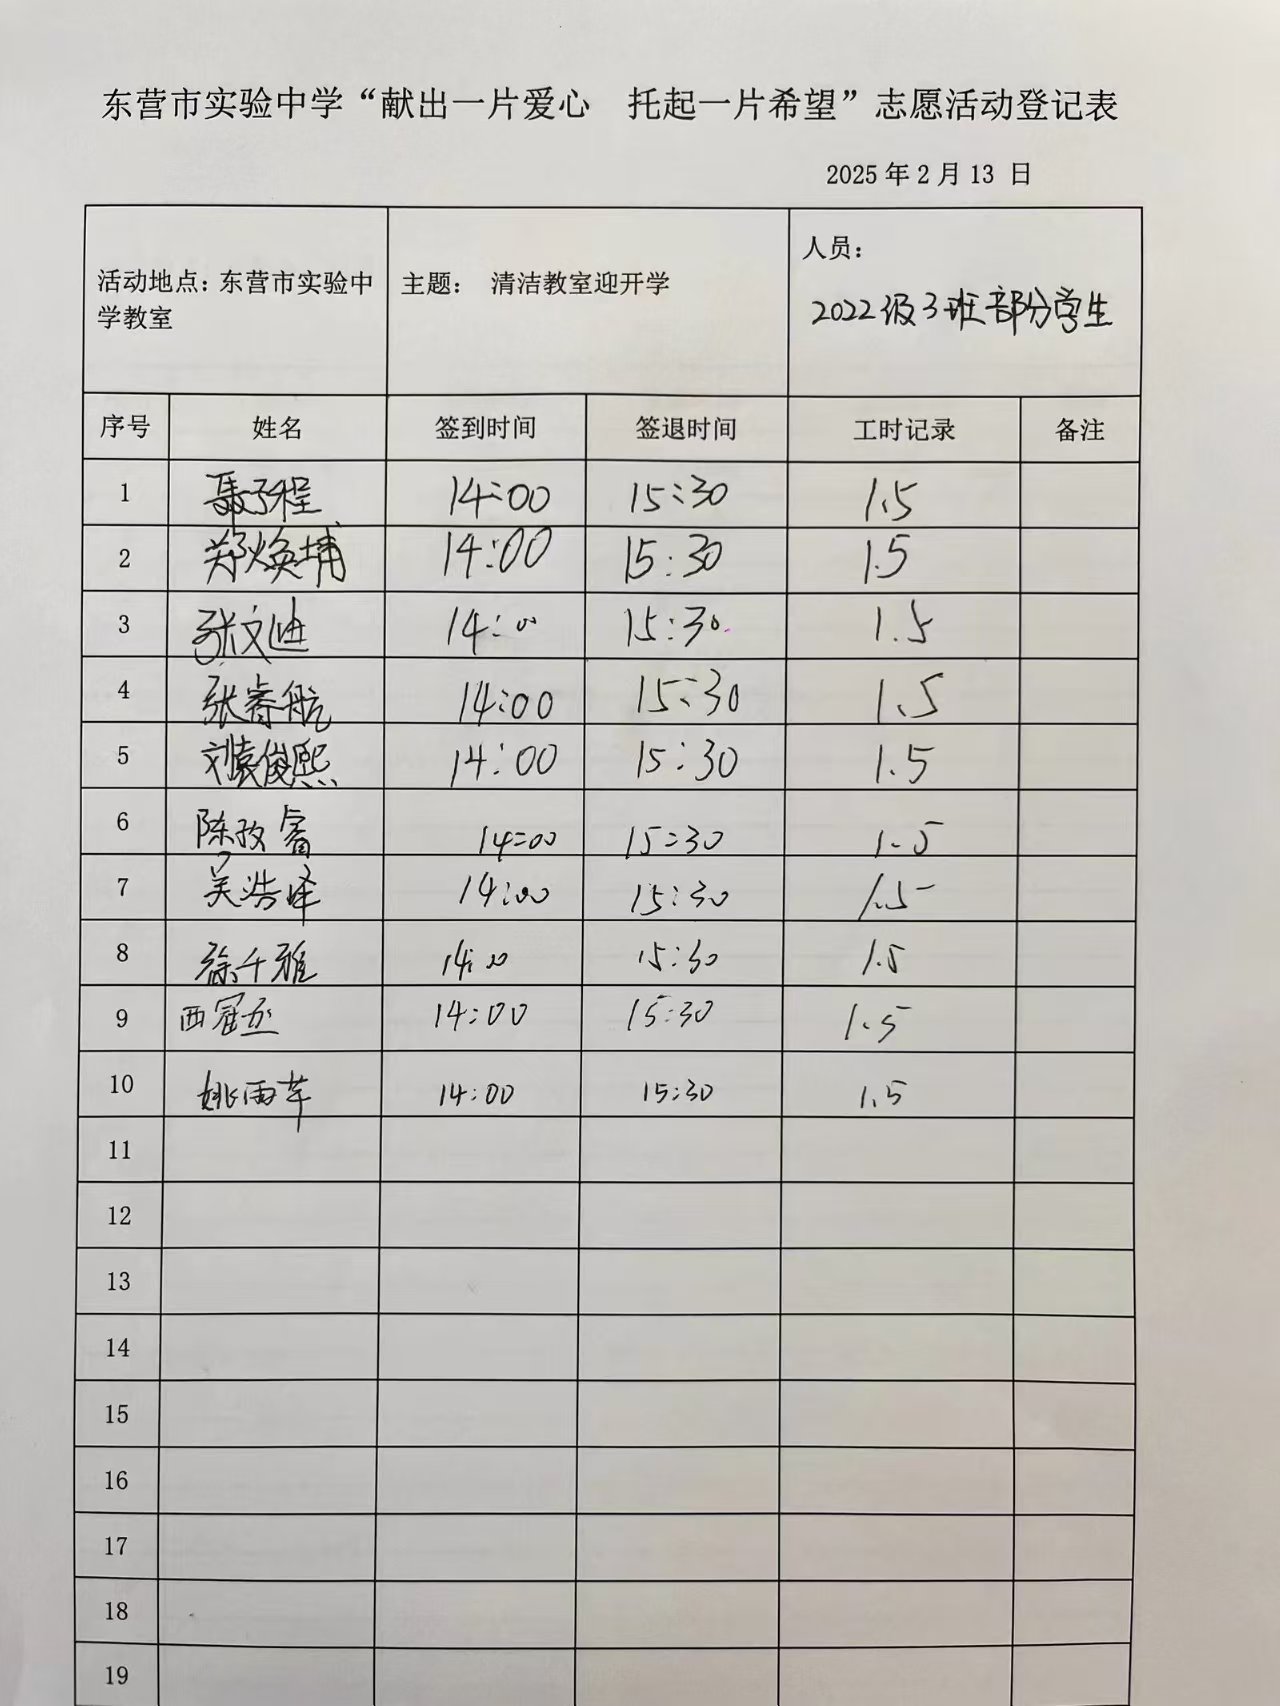 东营市实验中学“献出一片爱心　托起一片希望”志愿活动登记表
2025 年 2 月 13 日
活动地点：东营市实验中学教室
主题： 清洁教室迎开学
人员：
2022级3班部分学生
序号 姓名 签到时间 签退时间 工时记录 备注
1 聂子程 14:00 15:30 1.5
2 郑焕埔 14:00 15:30 1.5
3 张文迪 14:00 15:30 1.5
4 张睿航 14:00 15:30 1.5
5 刘袁俊熙 14:00 15:30 1.5
6 陈孜睿 14:00 15:30 1.5
7 吴浩泽 14:00 15:30 1.5
8 徐千雅 14:00 15:30 1.5
9 西冠丞 14:00 15:30 1.5
10 姚雨芊 14:00 15:30 1.5
11
12
13
14
15
16
17
18
19